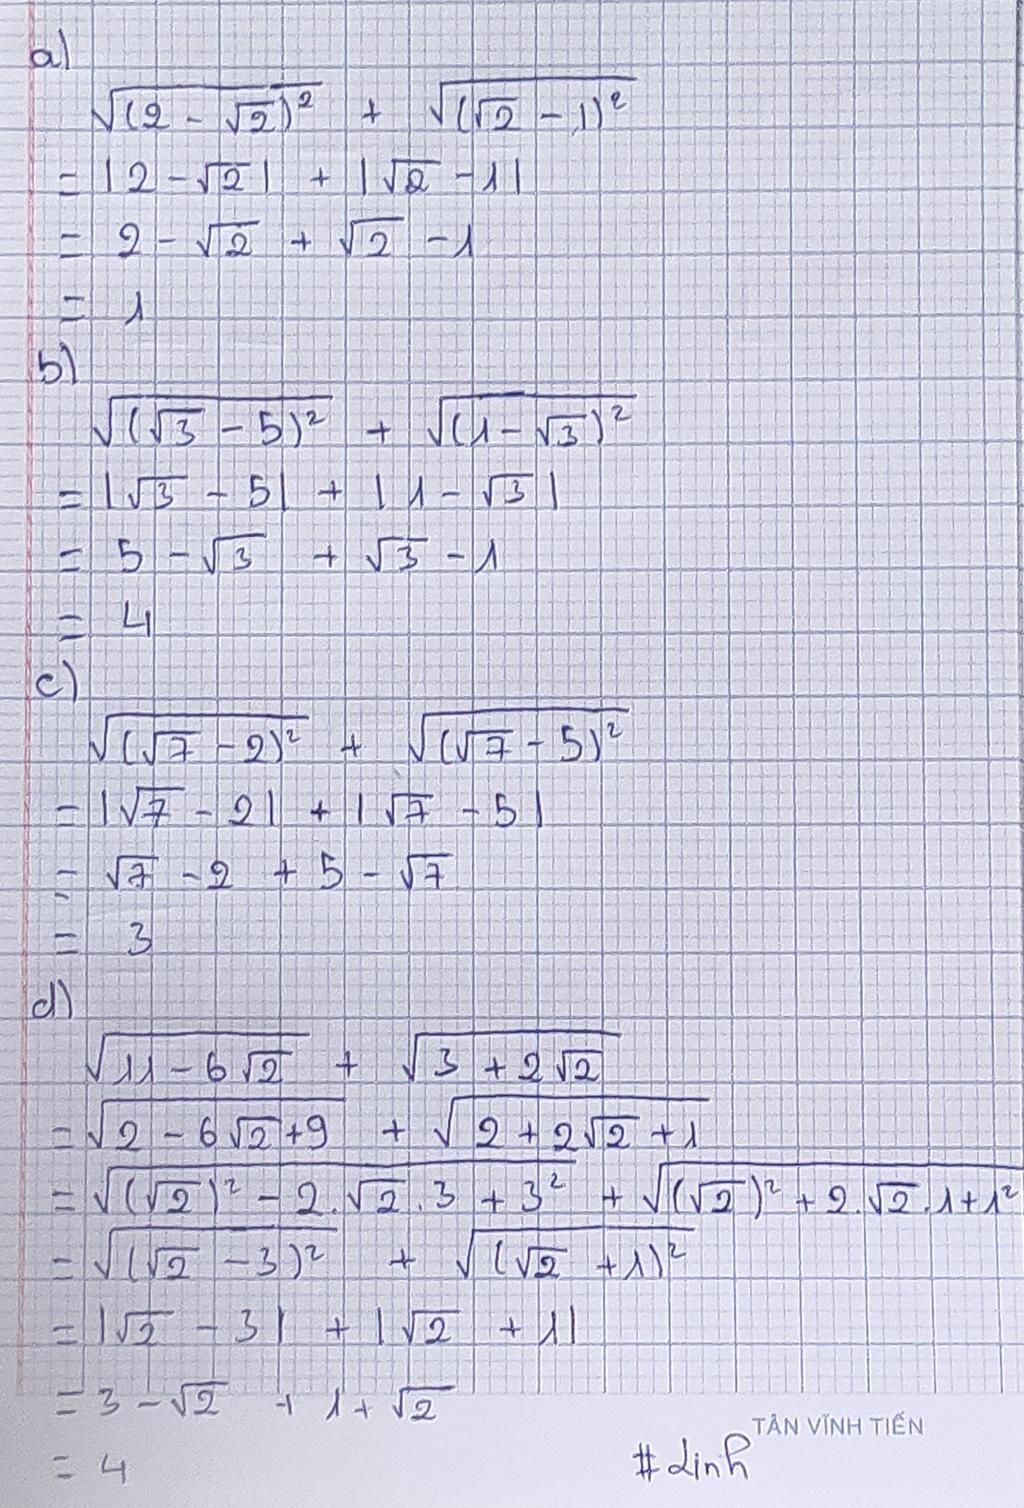 a)
√(2 - √2)² + √(√2 - 1)²
= |2 - √2| + |√2 - 1|
= 2 - √2 + √2 - 1
= 1
b)
√(√3 - 5)² + √(1 - √3)²
= |√3 - 5| + |1 - √3|
= 5 - √3 + √3 - 1
= 4
c)
√(√7 - 2)² + √(√7 - 5)²
= |√7 - 2| + |√7 - 5|
= √7 - 2 + 5 - √7
= 3
d)
√11 - 6√2 + √3 + 2√2
= √2 - 6√2 + 9 + √2 + 2√2 + 1
= √(√2)² - 2.√2.3 + 3² + √(√2)² + 2.√2.1 + 1²
= √(√2 - 3)² + √(√2 + 1)²
= |√2 - 3| + |√2 + 1|
= 3 - √2 + 1 + √2
= 4
TÂN VĨNH TIẾN
#Linh